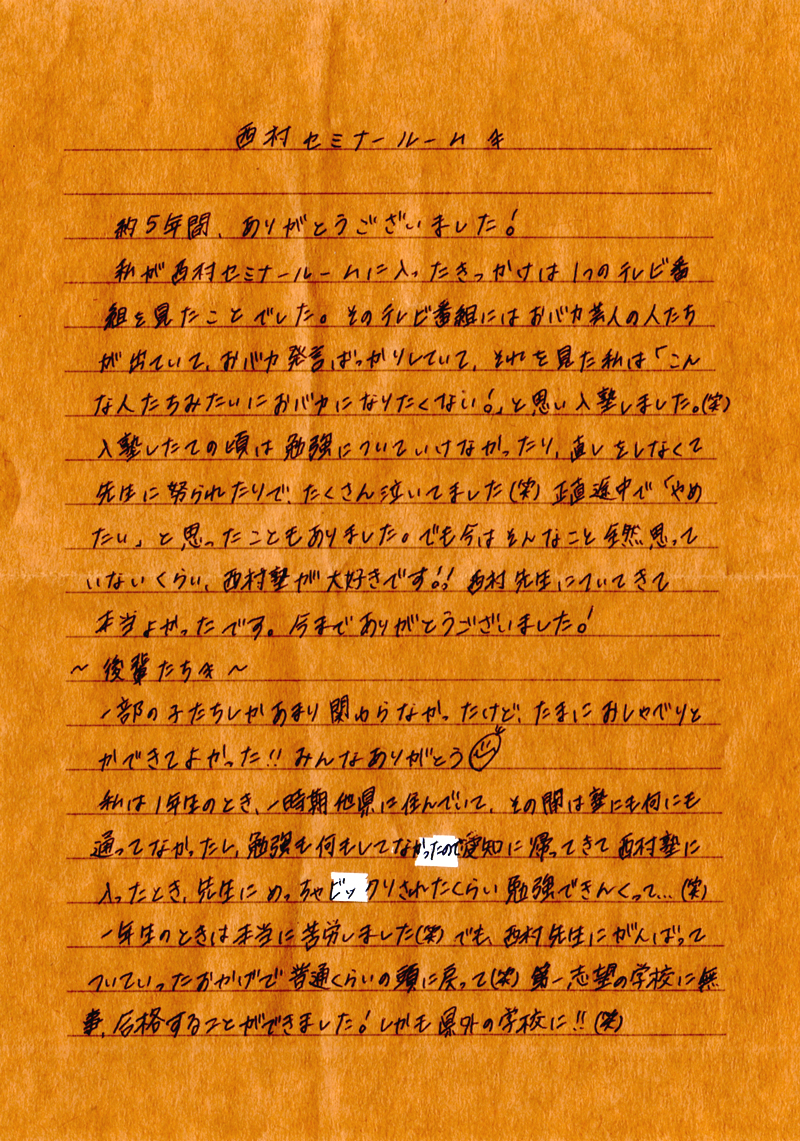 西村セミナールームへ
約5年間、ありがとうございました!
私が西村セミナールームに入ったきっかけは1つのテレビ番
組を見たことでした。そのテレビ番組にはおバカ芸人の人たち
が出ていて、おバカ発言ばっかりしていて、それを見た私は「こん
な人たちみたいにおバカになりたくない!」と思い入塾しました。(笑)
入塾したての頃は勉強についていけなかったり、直しをしなくて
先生に怒られたりで、たくさん泣いてました(笑) 正直途中で「やめ
たい」と思ったこともありました。でも今はそんなこと全然思って
いないくらい、西村塾が大好きです!! 西村先生についてきて
本当よかったです。今までありがとうございました!
~後輩たちへ~
一部の子たちしかあまり関わらなかったけど、たまにおしゃべりと
かできてよかった!! みんなありがとう
私は1年生のとき、一時期他県に住んでいて、その間は塾にも何にも
通ってなかったし、勉強も何もしてなかったので愛知に帰ってきて西村塾に
入ったとき、先生にめっちゃビックリされたくらい勉強できんくって…(笑)
一年生のときは本当に苦労しました(笑)でも、西村先生にがんばって
ついていったおかげで普通くらいの頭に戻って(笑) 第一志望の学校に無
事、合格することができました! しかも県外の学校に!! (笑)